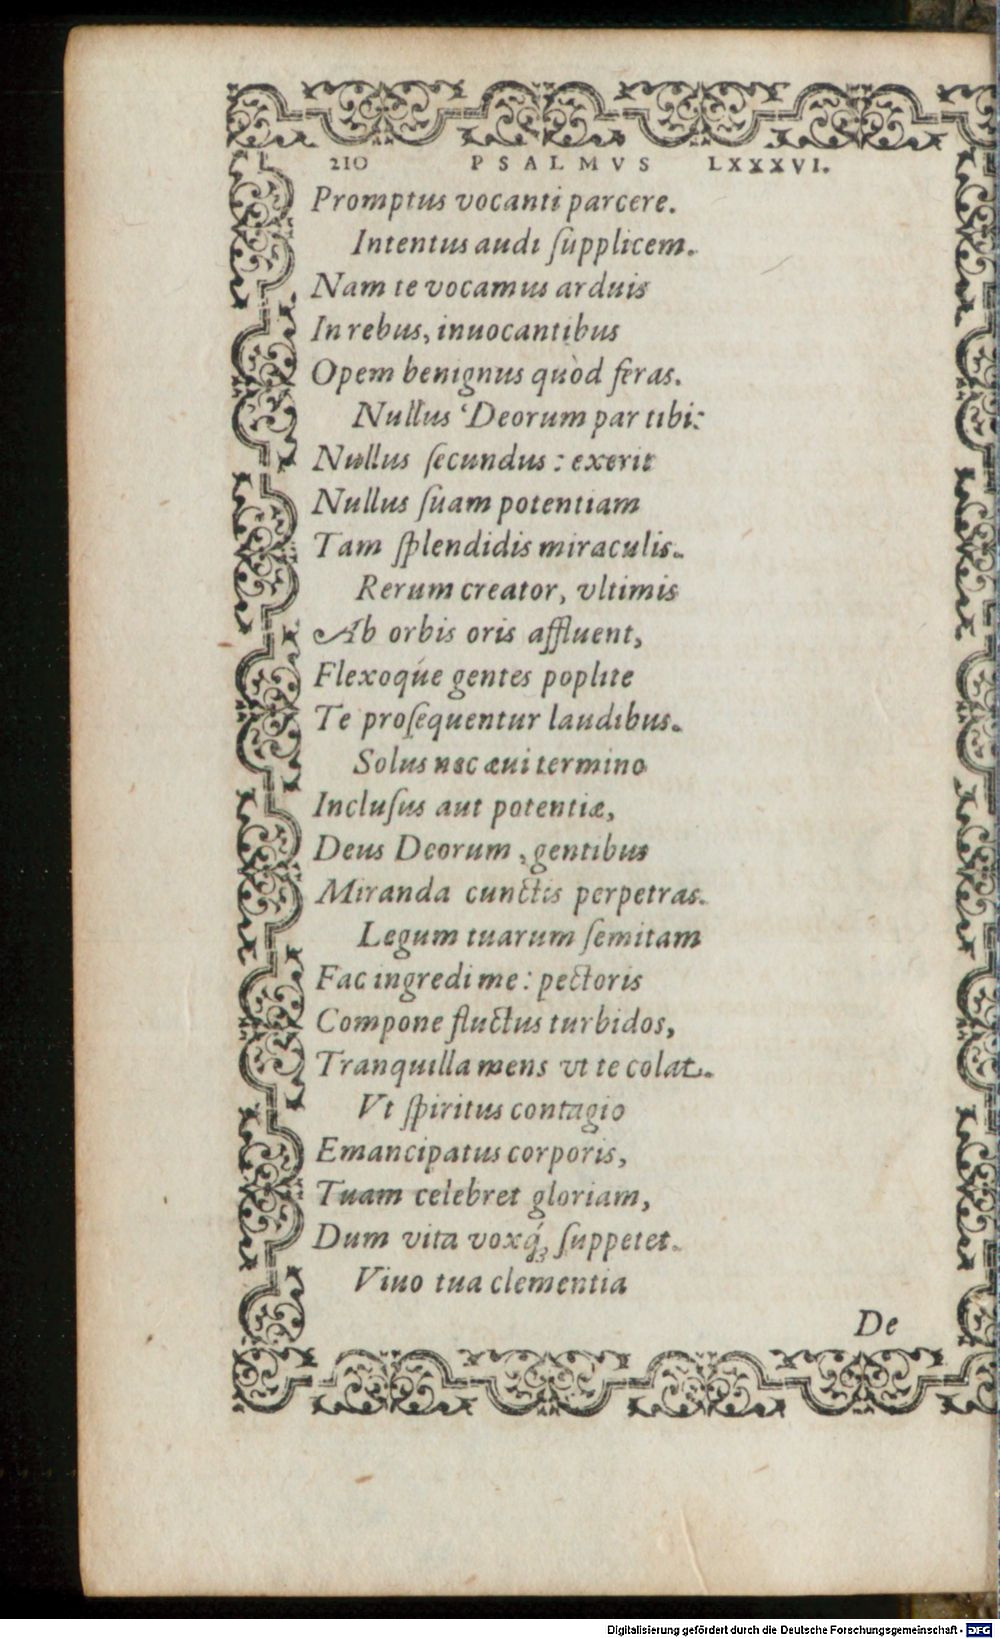 210 PSALMVS LXXXVI.
Promptus vocanti parcere.
Intentus audi ſupplicem.
Nam te vocamus arduis
In rebus, inuocantibus
Opem benignus quòd feras.
Nullus Deorum par tibi:
Nullus ſecundus: exerit
Nullus ſuam potentiam
Tam ſplendidis miraculis.
Rerum creator, vltimis
Ab orbis oris affluent,
Flexoq́ue gentes poplite
Te proſequentur laudibus.
Solus nec æui termino
Incluſus aut potentiæ,
Deus Deorum, gentibus
Miranda cunctis perpetras.
Legum tuarum ſemitam
Fac ingredi me: pectoris
Compone fluctus turbidos,
Tranquilla mens vt te colat.
Vt ſpiritus contagio
Emancipatus corporis,
Tuam celebret gloriam,
Dum vita voxq́ꝫ ſuppetet.
Viuo tua clementia
De
Digitalisierung gefördert durch die Deutsche Forschungsgemeinschaft - DFG